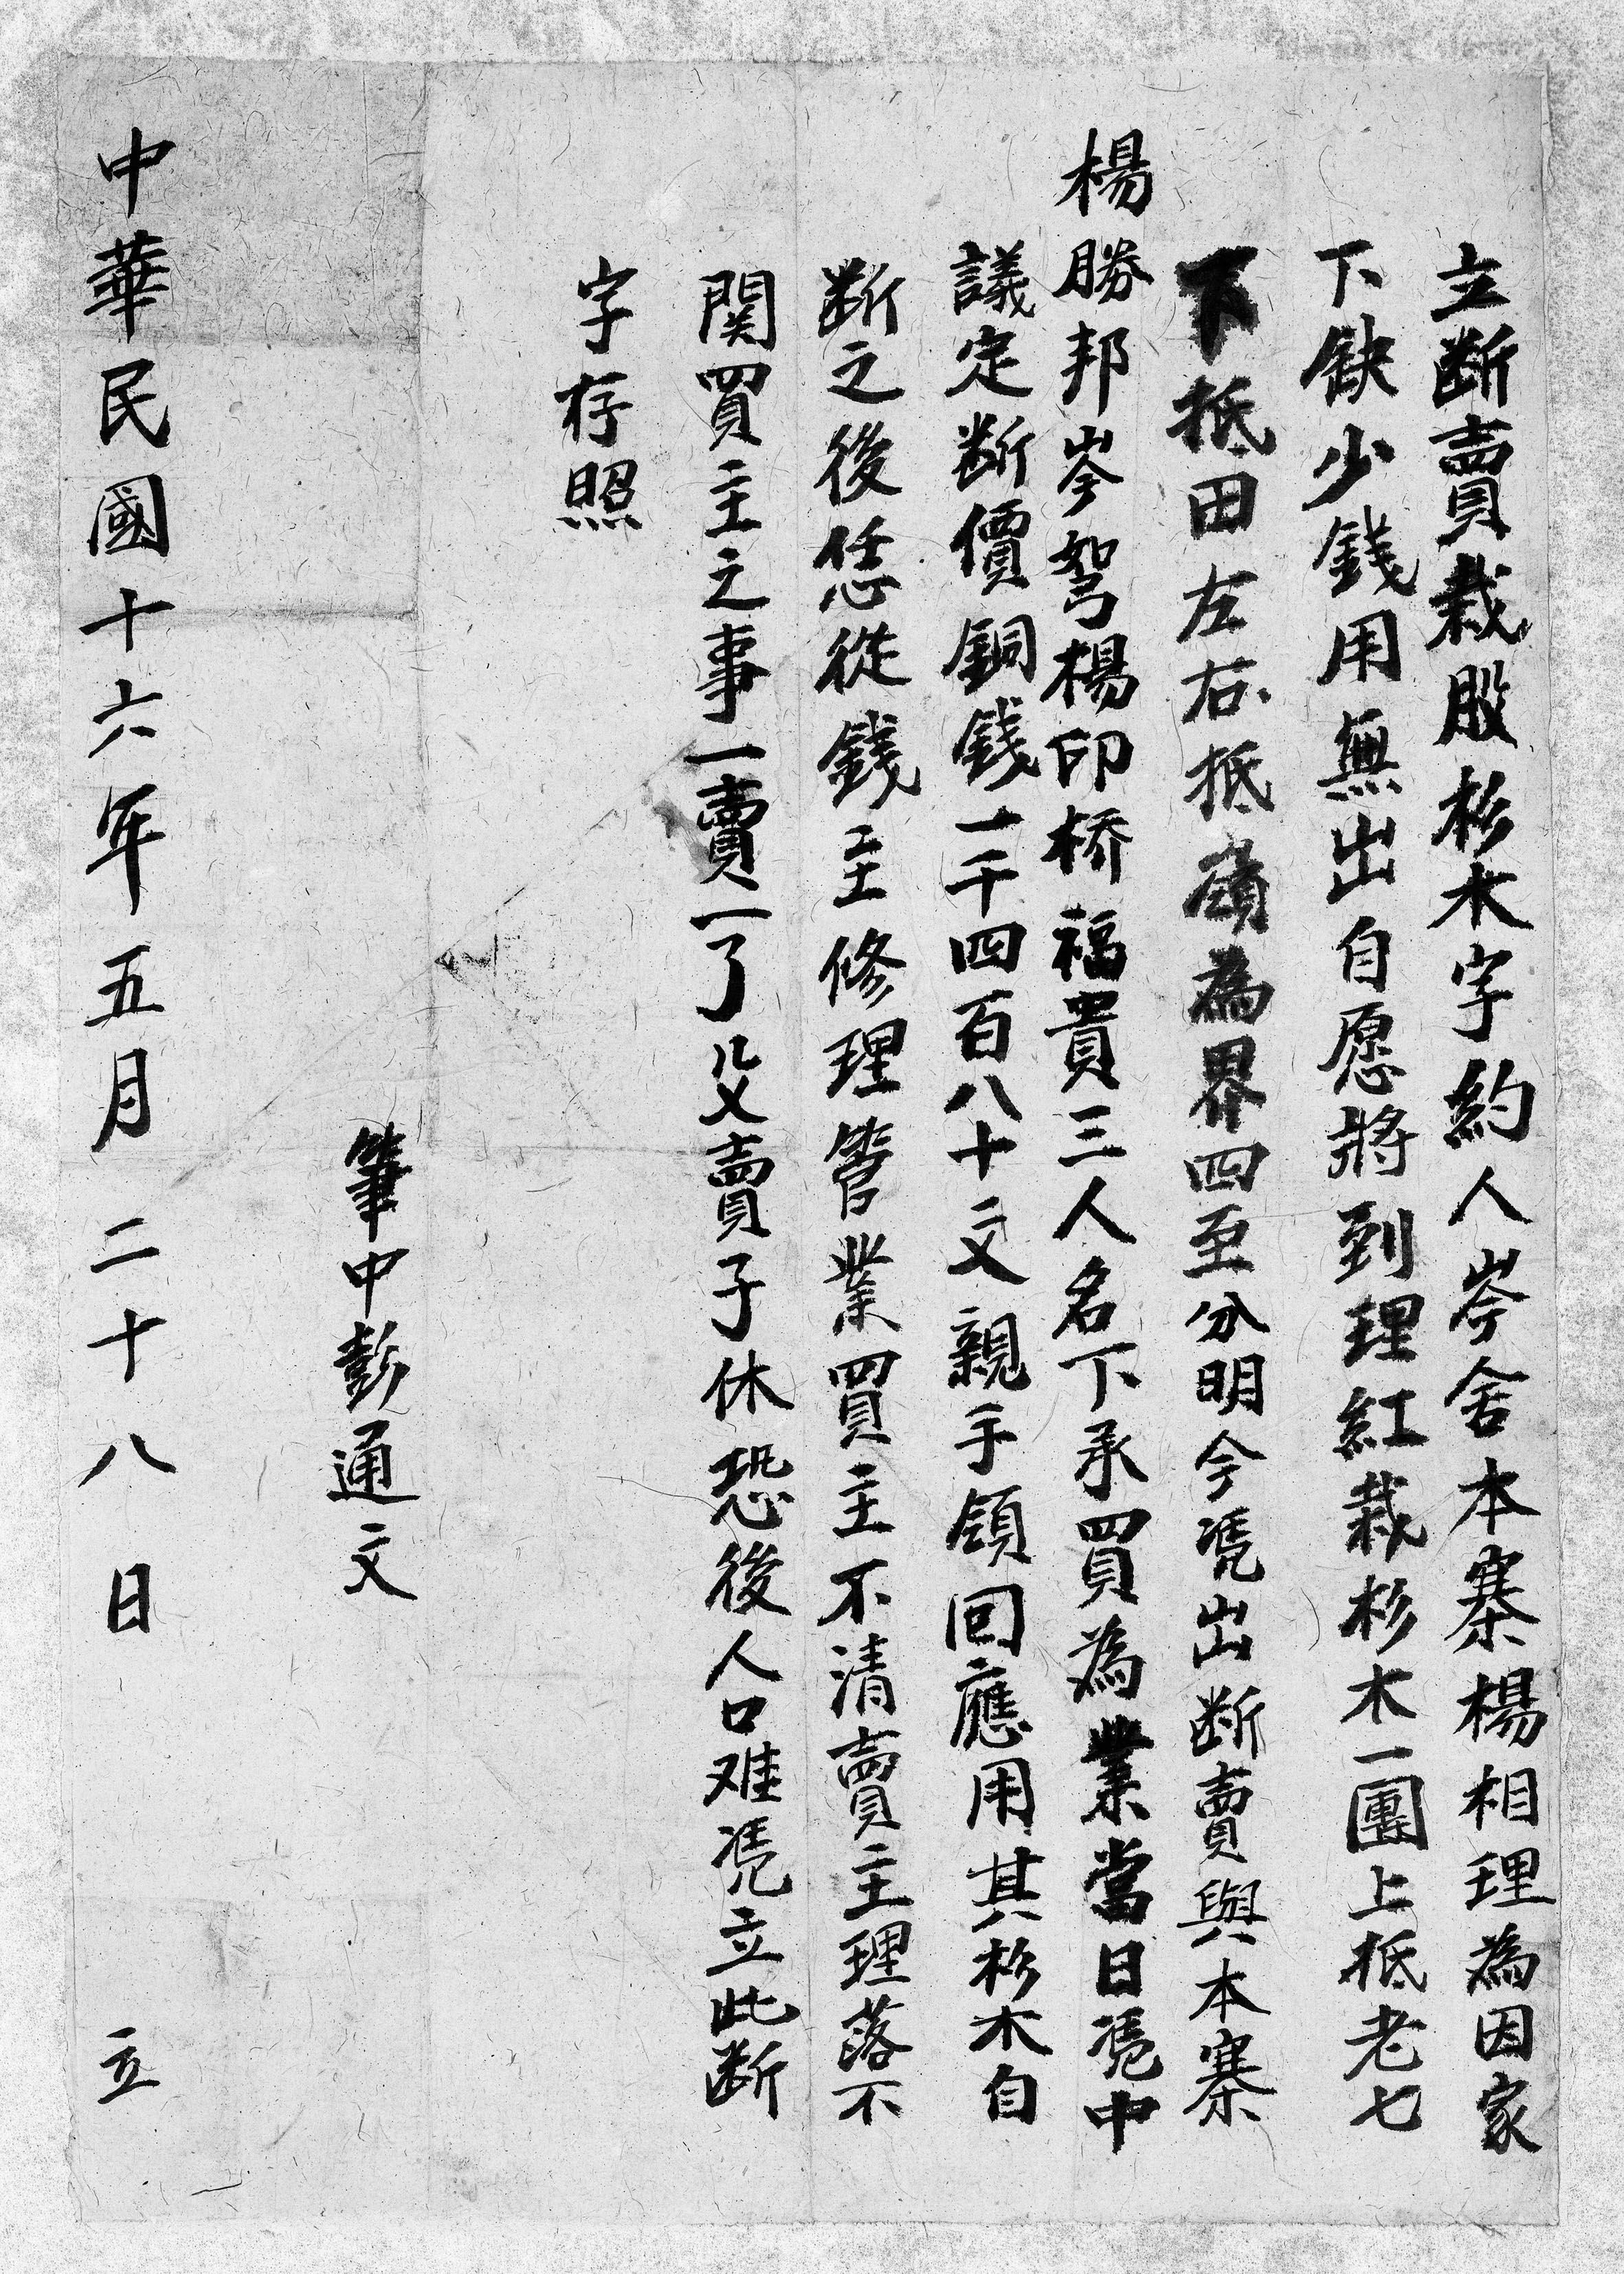 立断賣栽股杉木字約人岑舍本寨楊相理為因家
下缺少錢用無出自愿將到理紅栽杉木一團上抵老七
下抵田左右抵嶺為界四至分明今凴出断賣與本寨
楊勝邦岑楊印桥福貴三人名下承買為業當日凴中
議定断價銅錢一千四百八十文親手領回應用其杉木自
断之後恁從錢主修理管業買主不清賣主理落不
関買主之事一賣一了父賣子休恐後人口难凴立此断
字存照
筆中彭通文
中華民國十六年五月二十八日立